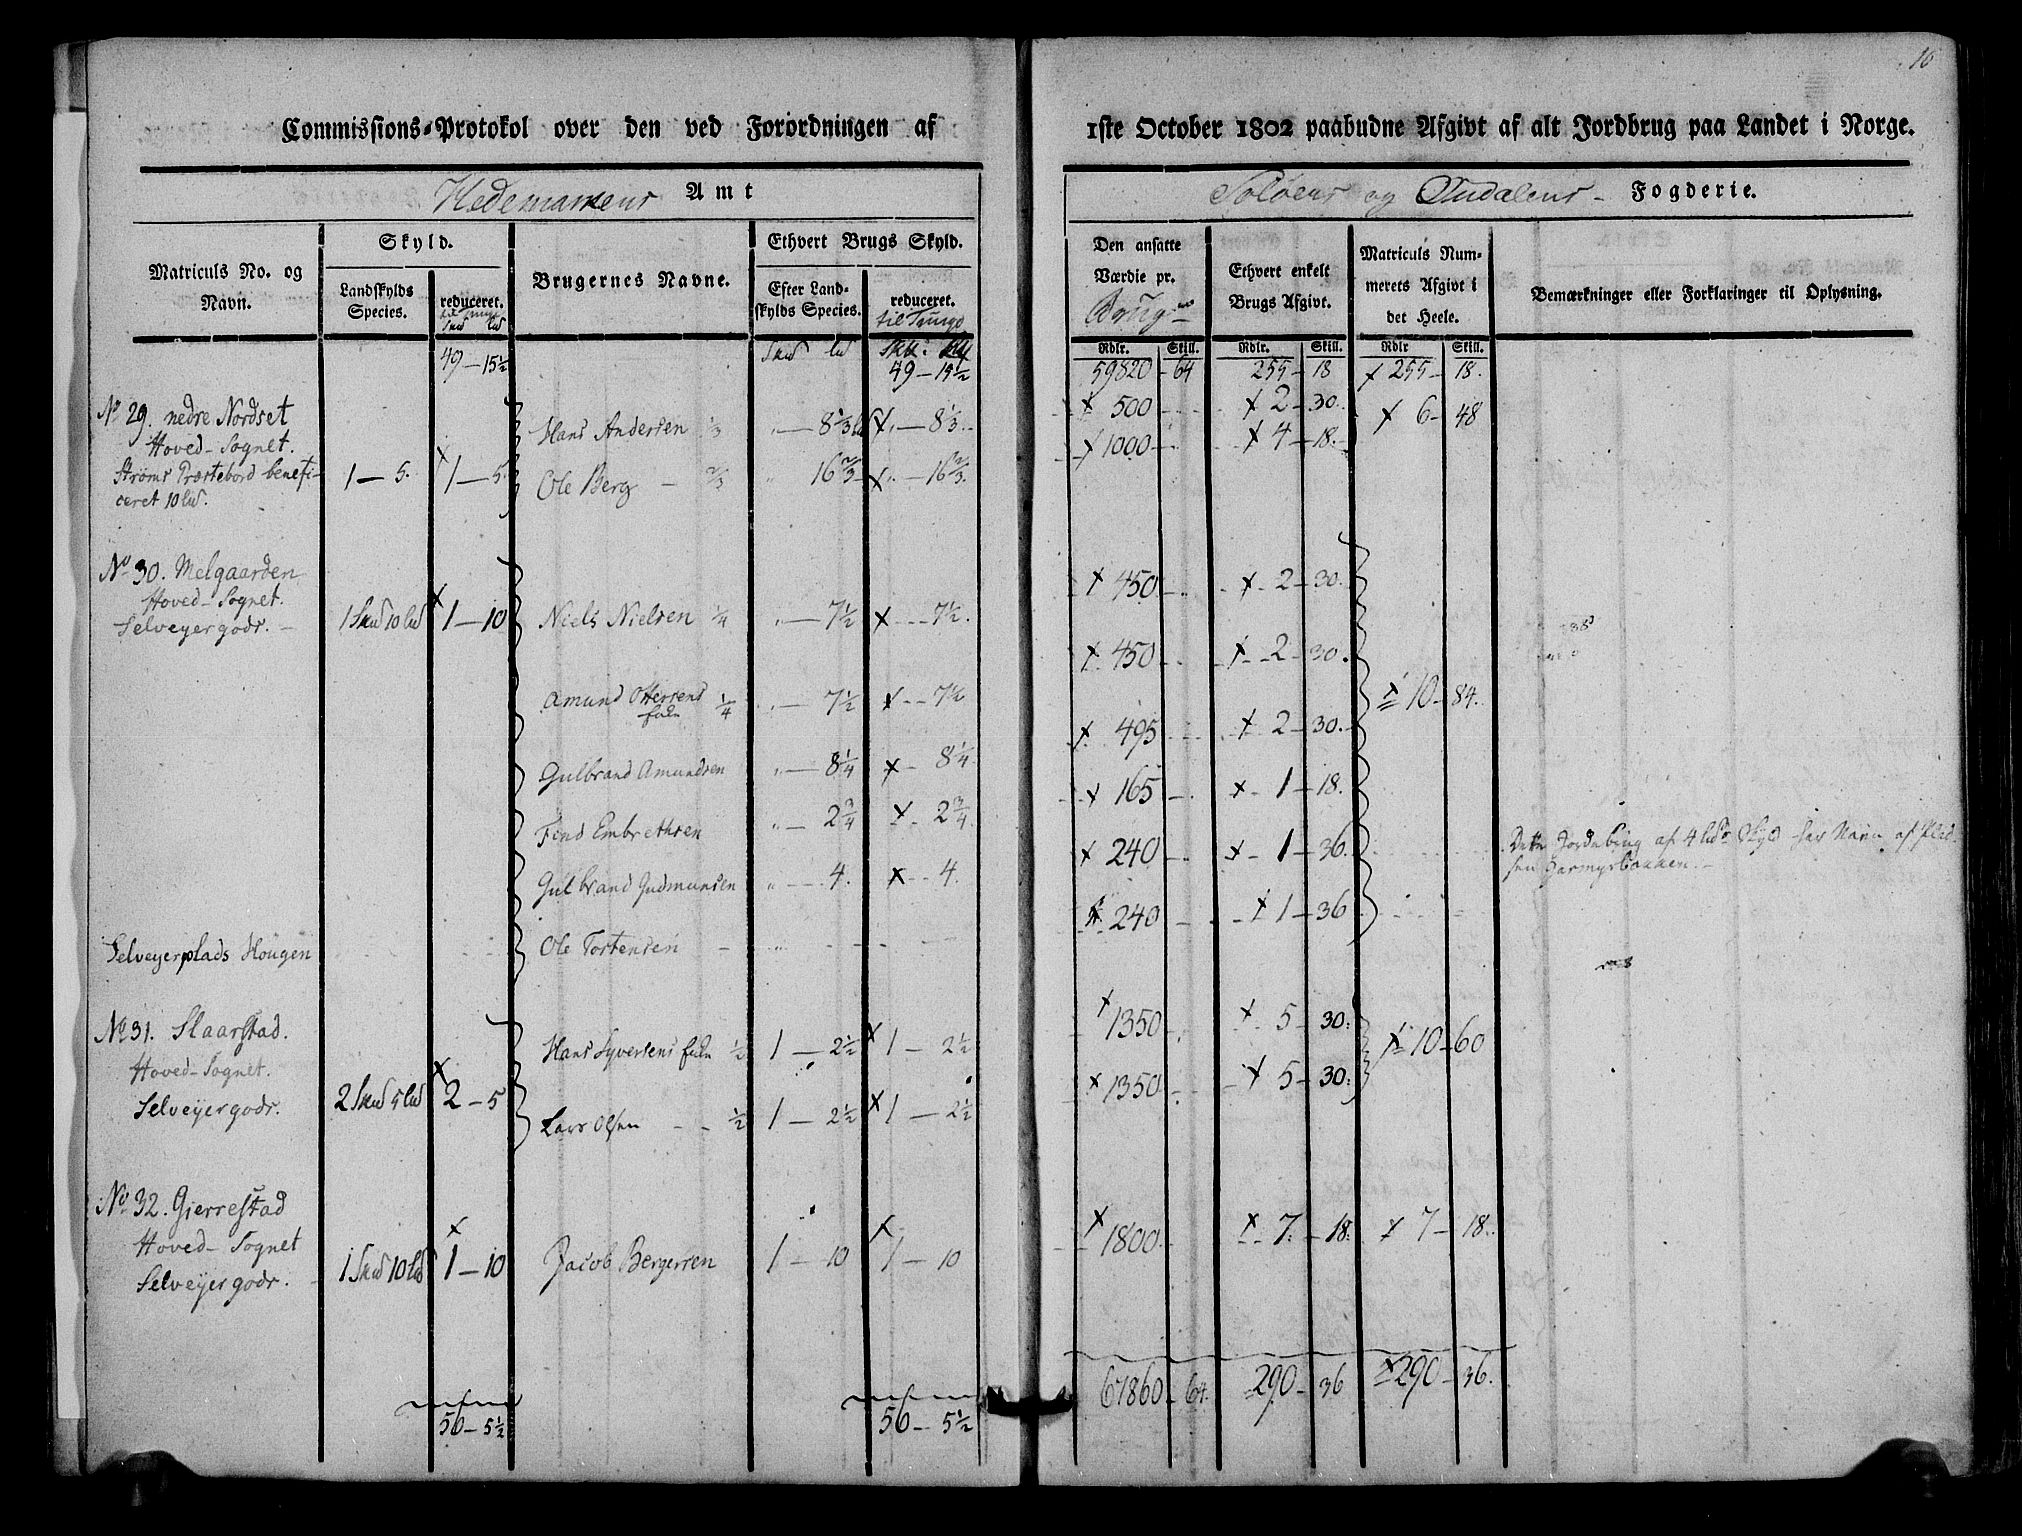 16
Commissions-Protokol over den ved Forordningen af 1ste October 1802 paabudne Afgivt af alt Jordbrug paa Landet i Norge.
Hedemarkens Amt
Soløens og Oudalens Fogderie.
Matriculs No. og Navn.
Skyld.
Landskylds Species.
reduceret.
til Tunge
Skd ld
Brugernes Navne.
Ethvert Brugs Skyld.
Efter Landskylds Species.
reduceret.
til Tunge
Den ansatte Værdie pr. Brug
Ethvert enkelt Brugs Afgivt.
Matriculs Nummerets Afgivt i det Heele.
Bemærkninger eller Forklaringer til Oplysning.
Rdlr. Skill. Rdlr. Skill. Rdlr Skill.
49 — 15½ Skd ld 49 — 15½ 59820 - 64 255 - 18 x 255 - 18.
No 29. nedre Nordset
Hoved-Sognet.
Strøms Præstebord benefi-
ceret 10 ld.
1 — 5. x 1 — 5.
Hans Andersen 1/3 " — 8 1/3 x " — 8 1/3 x 500 x 2 - 30. x 6 - 48
Ole Berg — 2/3 " 16 2/3 x " — 16 2/3. x 1000 x 4 - 18.
No 30. Melgaarden
Hoved-Sognet.
Selveyergods. —
1 Skd 10 ld x 1 — 10
Niels Nielsen ¼ " — 7½ x - - - 7½. x 450 x - 2 - 30.
Amund Ottersens ¼ " — 7½ x - - 7½ x 450 x - 2 - 30.
x 10 - 84.
Gulbrand Amundsen " — 8¼ x - 8¼ x 495 x 2 - 30.
Find Embrethsen " — 2¾ x - 2¾ x 165 x - 1 - 18.
Gulbrand Gudmunsen " - - - 4. x - - 4. x 240 x - 1 - 36.
Dette af 4 lds Skyld har Navn af Plad-
sen
Selveyerplads Hougen
Ole Tostensen — x 240 x 1 - 36
No 31. Slaarstad.
Hoved-Sognet.
Selveyergods.
2 Skd 5 ld x 2 - 5
Hans Syversens ½ 1 — 2½ x 1 — 2½ x 1350 x - 5 - 30. x 10 - 60
Lars Olsen - - ½ 1 — 2½ x 1 — 2½ x 1350 x 5 - 30.
No 32. Gierrestad
Hoved-Sognet
Selveyergods. —
1 Skd 10 ld x 1 — 10
Jacob Bergersen 1 — 10 x 1 — 10 x 1800 x - 7. - 18. x 7 - 18.
50 — 5½ 50 — 5½ 67860 - 64. 290 - 36 x 290 - 36.